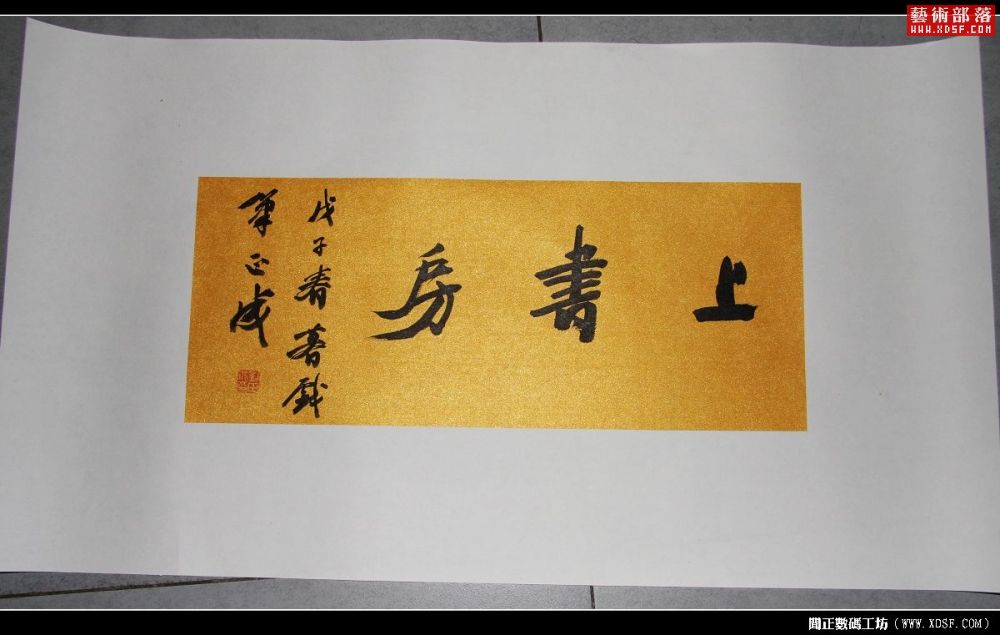 藝術部落
WWW.XDSF.COM
上書房
戊子春暮戲
筆正成
閒正數碼工坊（WWW.XDSF.COM）